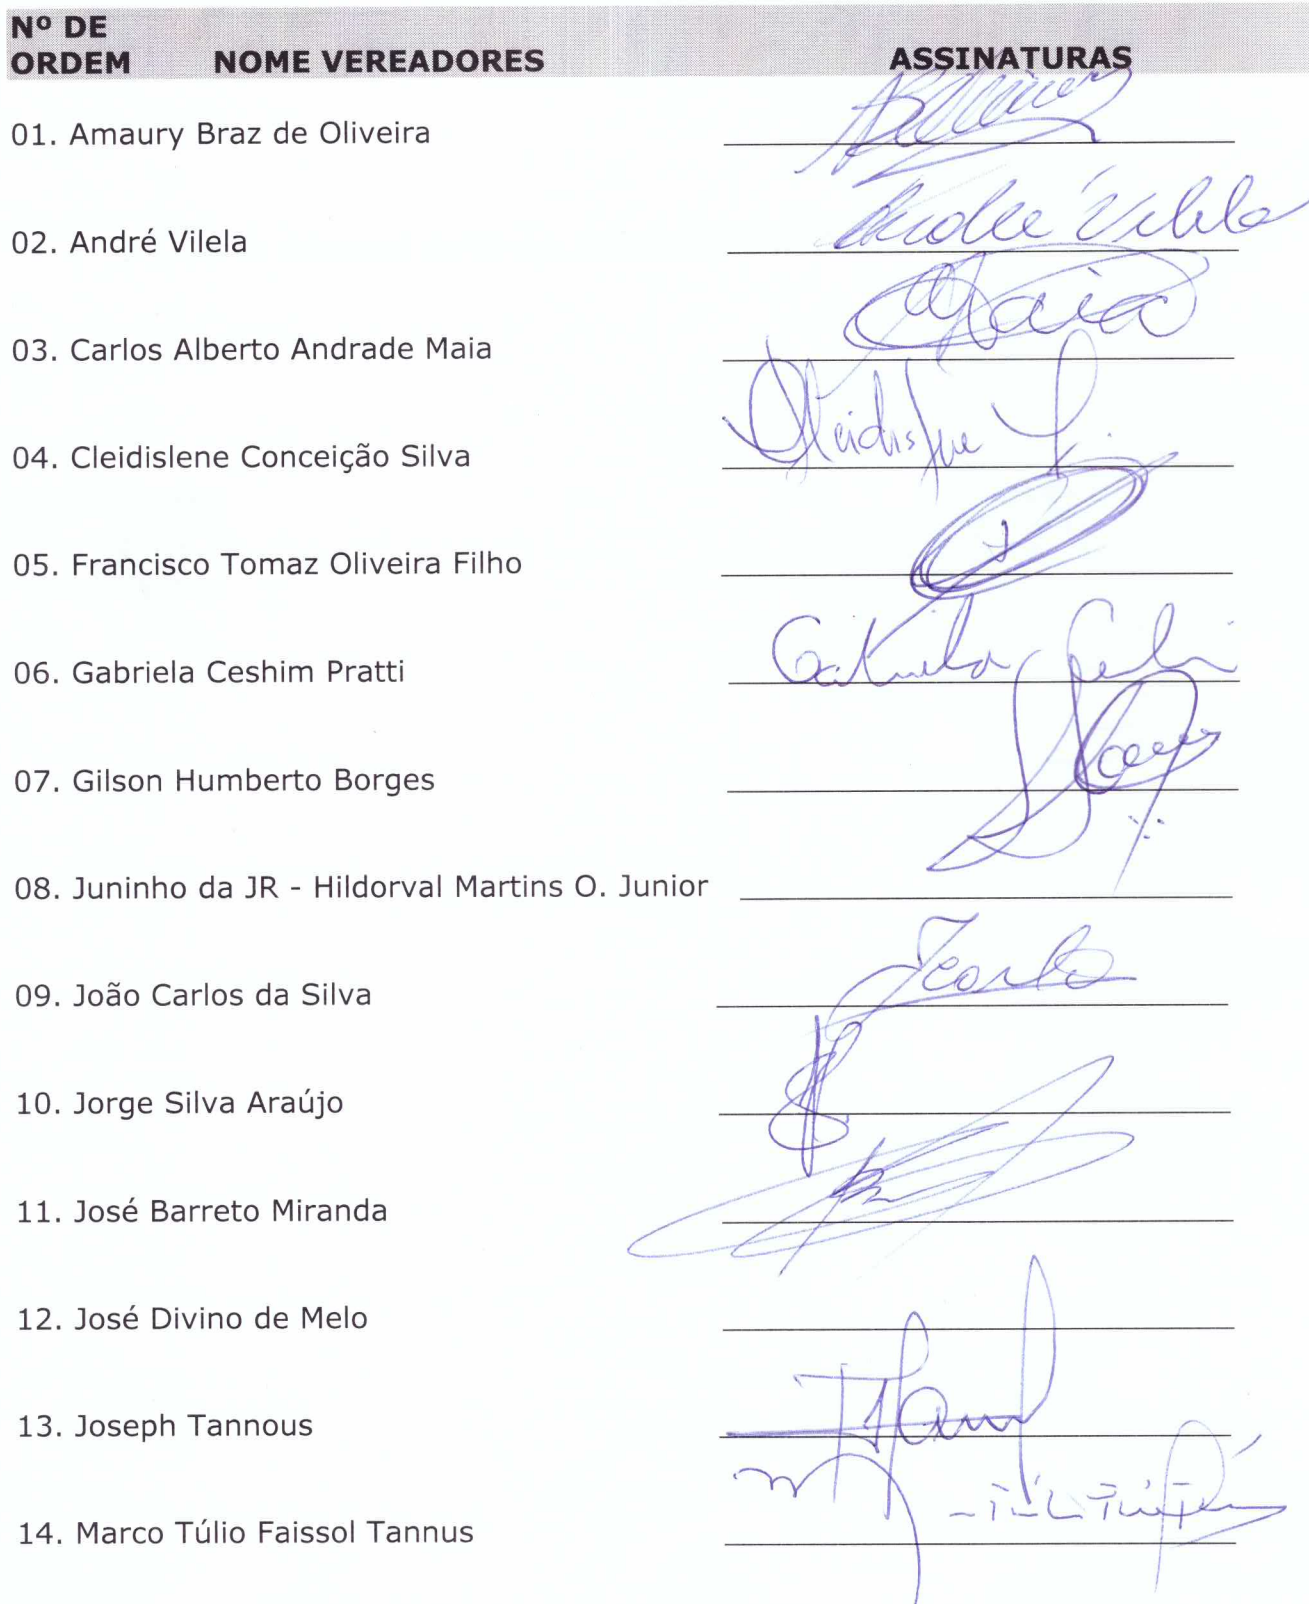 Nº DE
ORDEM NOME VEREADORES ASSINATURAS
01. Amaury Braz de Oliveira
02. André Vilela André Vilela
03. Carlos Alberto Andrade Maia Maia
04. Cleidislene Conceição Silva
05. Francisco Tomaz Oliveira Filho
06. Gabriela Ceshim Pratti Gabriela
07. Gilson Humberto Borges
08. Juninho da JR - Hildorval Martins O. Junior
09. João Carlos da Silva
10. Jorge Silva Araújo
11. José Barreto Miranda
12. José Divino de Melo
13. Joseph Tannous
14. Marco Túlio Faissol Tannus